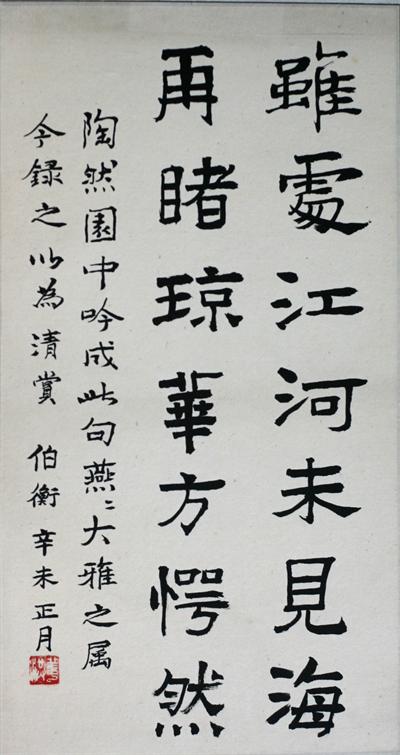 雖處江河未見海
再睹琼華方愕然
陶然園中吟成此句燕〻大雅之属
今録之以為清賞 伯衡 辛未正月